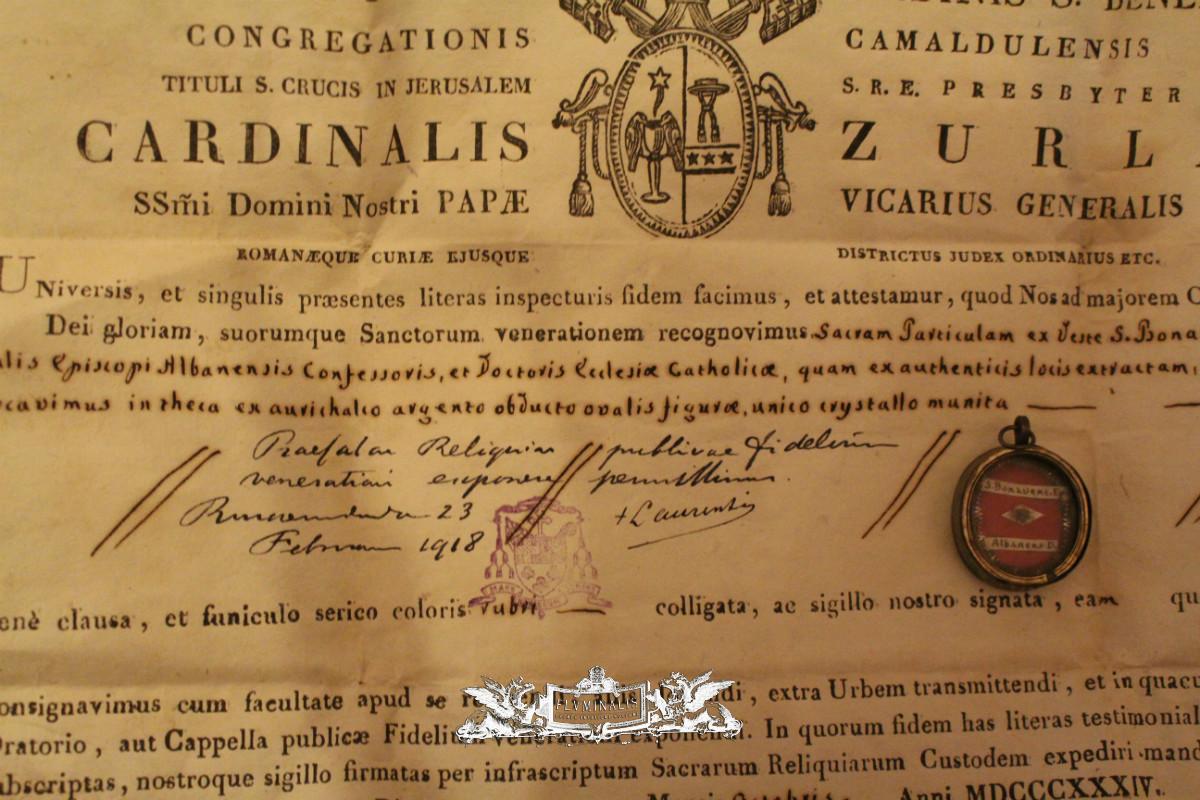 CONGREGATIONIS CAMALDULENSIS
TITULI S. CRUCIS IN JERUSALEM S. R. E. PRESBYTER
CARDINALIS ZURL
SSm̃i Domini Nostri PAPÆ VICARIUS GENERALIS
ROMANÆQUE CURIÆ EJUSQUE DISTRICTUS JUDEX ORDINARIUS ETC.
UNiversis, et singulis præsentes literas inspecturis fidem facimus, et attestamur, quod Nos ad majorem
Dei gloriam, suorumque Sanctorum venerationem recognovimus Sacram Particulam ex Veste S. Bona
alis Episcopi Albanensis Confessoris, et Doctoris Ecclesiæ Catholicæ, quam ex authenticis locis extractam,
ocavimus in theca ex aurichalco argento obducto ovalis figuræ, unico crystallo munita
Praefatas Reliquias publicae fidelium
venerationi exponere permittimus.
23 + Laurentius
1918
S. Bonavent. E
Albanens D.
enè clausa, et funiculo serico coloris rubri colligata, ac sigillo nostro signata, eam
onsignavimus cum facultate apud se , extra Urbem transmittendi, et in quacu
Oratorio, aut Cappella publicæ Fidelium venerationi exponendi. In quorum fidem has literas testimonial
ubscriptas, nostroque sigillo firmatas per infrascriptum Sacrarum Reliquiarum Custodem expediri mand
Anni MDCCCXXXIV.
FLVMINALIS